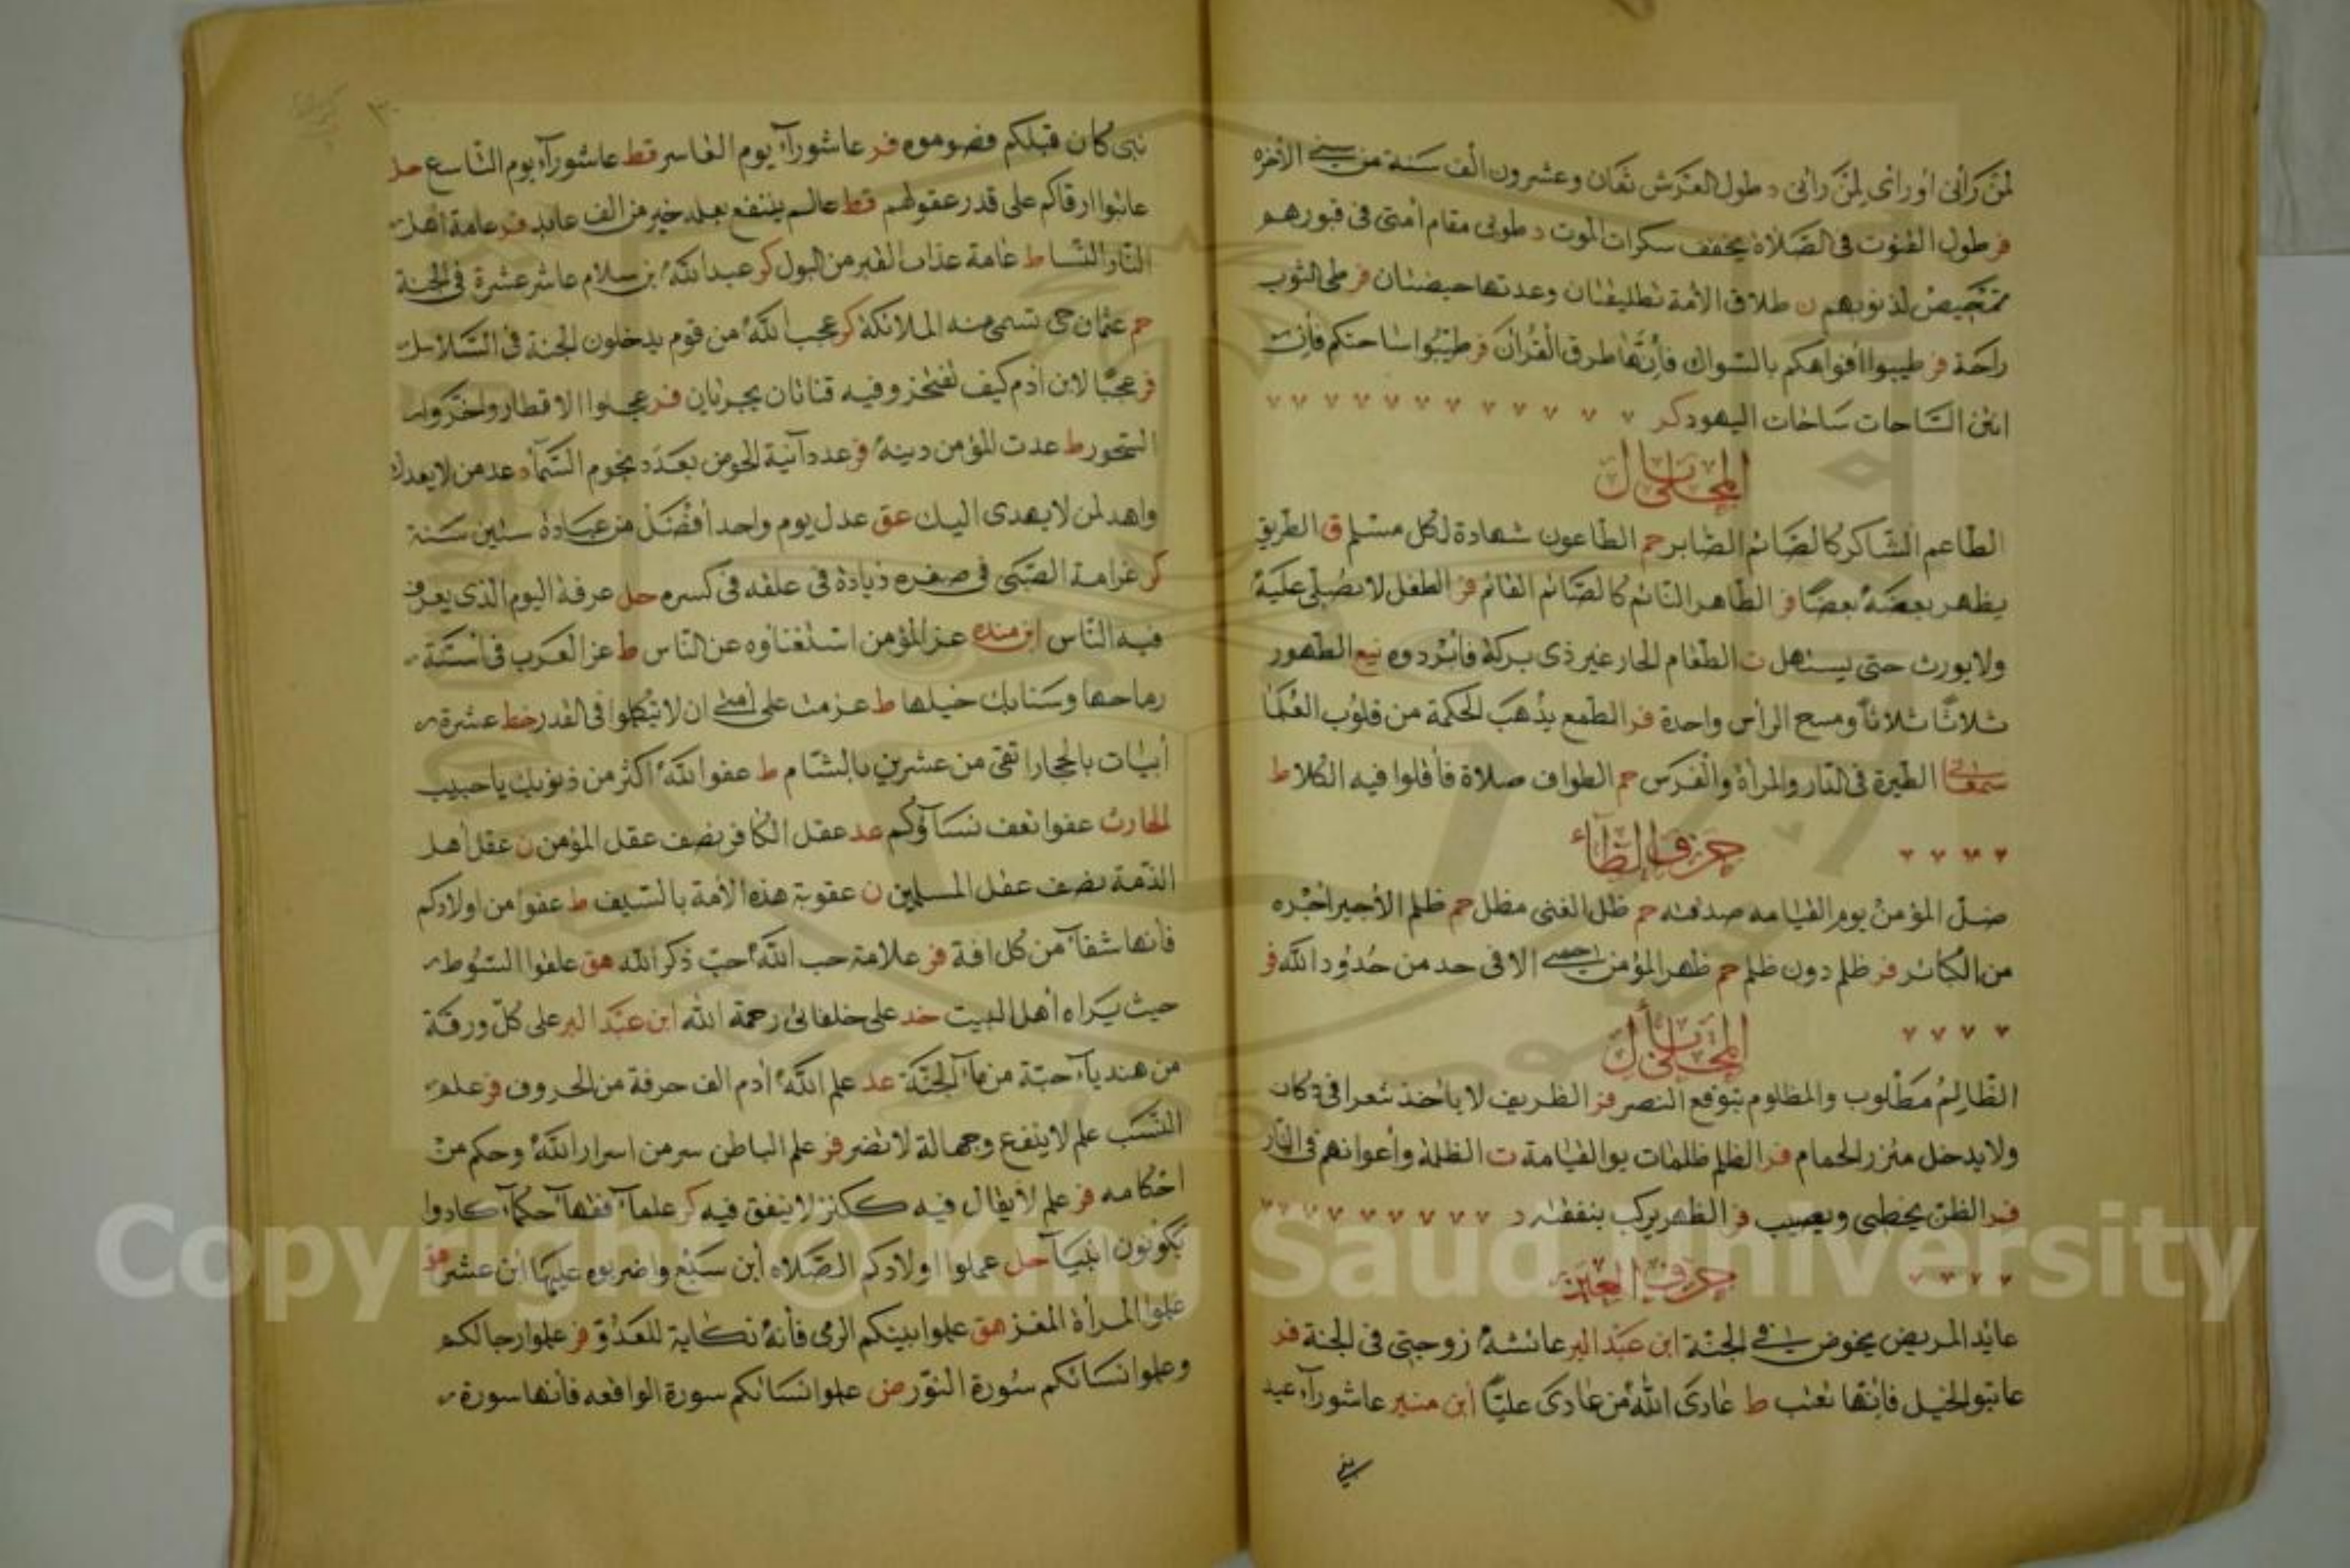 لمن رآنى أو رأى لمن رآنى د طول العرش ثمان وعشرون ألف سنة من سنى الآخرة
فر طول القنوت فى الصلاة يخفف سكرات الموت د طوبى مقام أمتى فى قبورهم
تمحيص لذنوبهم ن طلاق الأمة تطليقتان وعدتها حيضتان فر طى الثوب
راحة فر طيبوا أفواهكم بالسواك فإنها طرق القرآن فر طيبوا ساحتكم فإن
انتن الساحات ساحات اليهود كر
المحلى بال
الطاعم الشاكر كالصائم الصابر حم الطاعون شهادة لكل مسلم ق الطريق
يظهر بعضه بعضا فر الطاهر النائم كالصائم القائم فر الطفل لا يصلى عليه
ولا يورث حتى يستهل ت الطعام الحار غير ذى بركة فابردوه نيع الطهور
ثلاثا ثلاثا ومسح الرأس واحدة فر الطمع يذهب الحكمة من قلوب العلما
سمعانى الطيرة فى الدار والمرأة والفرس حم الطواف صلاة فأقلوا فيه الكلا ط
حرف الظاء
ضل المؤمن يوم القيامه صدقته حم ظل الغنى مطل حم ظلم الأجير اجره
من الكبائر فر ظلم دون ظلم حم ظهر المؤمن حمى الا فى حد من حدود الله فر
المحلى بأل
الظالم مطلوب والمظلوم يتوقع النصر فر الظريف لا ياخذ شعرا فى دكان
ولا يدخل مئزر الحمام فر الظلم ظلمات يو القيامة ت الظلمة وأعوانهم فى النار
فر الظن يخطى ويصيب فر الظهر يركب بنفقته د
حرف العين
عايد المريض يخوض فى الجنة ابن عبد البر عائشة زوجتى فى الجنة فر
عاتبوا الخيل فإنها تعتب ط عادى الله من عادى عليا ابن منير عاشورآء عيد
نبى
نبى كان قبلكم فصوموه فر عاشورآء يوم العاسر قط عاشورآء يوم التاسع حل
عاتبوا ارقاكم على قدر عقولهم قط عالم ينتفع بعلمه خير من الف عابد فر عامة اهل
النار النسا ط عامة عذاب القبر من البول كر عبد الله بن سلام عاشر عشرة فى الجنة
حم عثمان حى تستحى منه الملائكة كر عجب الله من قوم يدخلون الجنة فى السلاسل
فر عجبا لابن آدم كيف يفتخر وفيه قناتان يجريان فر عجلوا الافطار واخروا
السحور ط عدت المؤمن دينه فر عدد آنية الحوض بعدد نجوم السمآ د عد من لا يعدك
واهد لمن لا يهدى اليك عق عدل يوم واحد أفضل من عبادة ستين سنة
كر غرامة الصبى فى صغره زيادة فى علقه فى كسره حل عرفة اليوم الذى يعرف
فيه الناس ابن منده عز المؤمن استغناوه عن الناس ط عز العرب فى اسنة
رماحها وسنابك خيلها ط عزمت على أمتى ان لا تتكلموا فى القدر خط عشرة
أبيات بالحجار اتقى من عشرين بالشام ط عفو الله أكثر من ذنوبك يا حبيب
الحارث عفوا تعف نسآؤكم عد عقل الكافر نصف عقل المؤمن ن عقل أهل
الذمة نصف عقل المسلمين ن عقوبة هذه الأمة بالسيف ط عقوا من اولادكم
فأنها شفآ من كل افة فر علامة حب الله حب ذكر الله هق علقوا السوط
حيث يراه أهل البيت خد على خلفائى رحمة الله ابن عبد البر على كل ورقة
من هنديآء حبة من مآء الجنة عد علم الله آدم الف حرفة من الحروف فر علم
النسب علم لا ينفع وجهالة لا تضر فر علم الباطن سر من اسرار الله وحكم من
احكامه فر علم لا يقال فيه ككنز لا ينفق فيه كر علمآ فقهآ حكمآ كادوا
يكونون انبيآ حل عملوا اولادكم الصلاه أبن سبع واضربوه عليها ابن عشر فر
علموا المرأة المغزل هق علموا بينكم الرمى فأنه نكاية للعدو فر علموا رجالكم
وعلموا نسائكم سورة النور ض علموا نسائكم سورة الواقعه فأنها سورة
Copyright © King Saud University